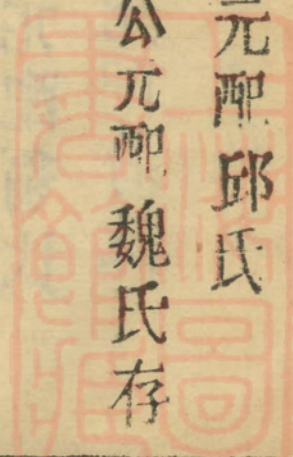 元配邱氏
公元配魏氏存